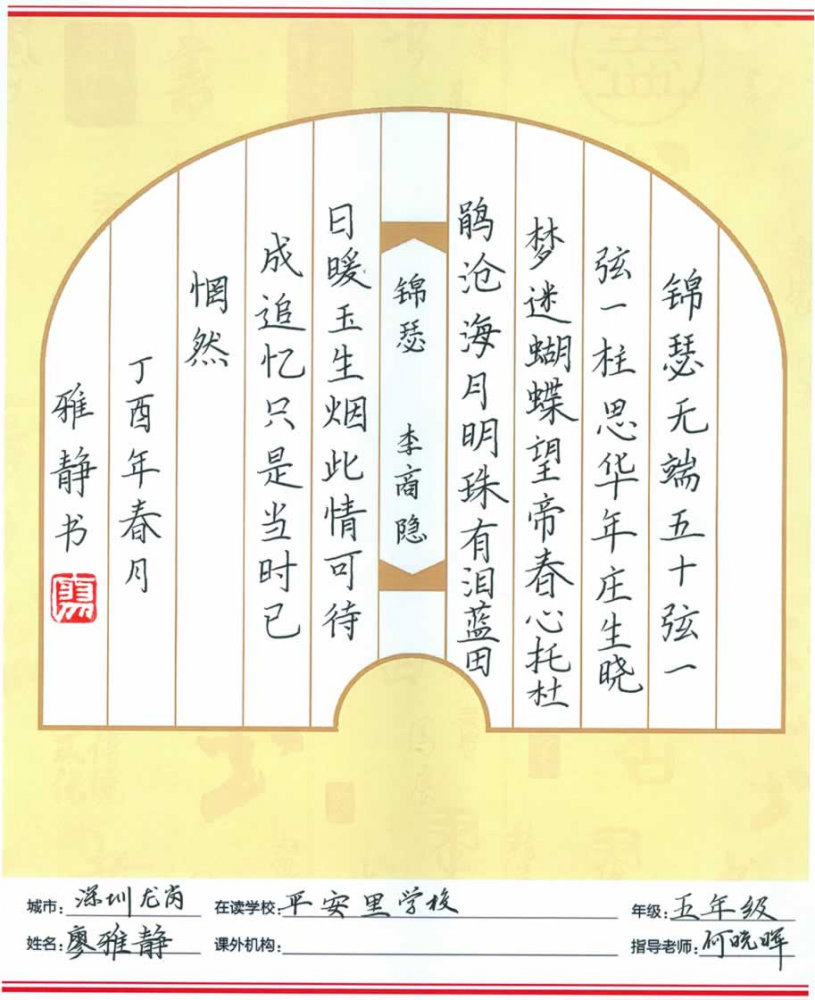 锦瑟无端五十弦一
弦一柱思华年庄生晓
梦迷蝴蝶望帝春心托杜
鹃沧海月明珠有泪蓝田
锦瑟 李商隐
日暖玉生烟此情可待
成追忆只是当时已
惘然
丁酉年春月
雅静书
城市:深圳龙岗 在读学校:平安里学校 年级:五年级
姓名:廖雅静 课外机构: 指导老师:何晓晖